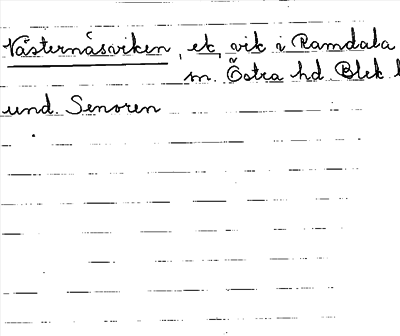 Västernäsviken, et, vik i Ramdala
sn. Östra hd Blek l
und. Senoren